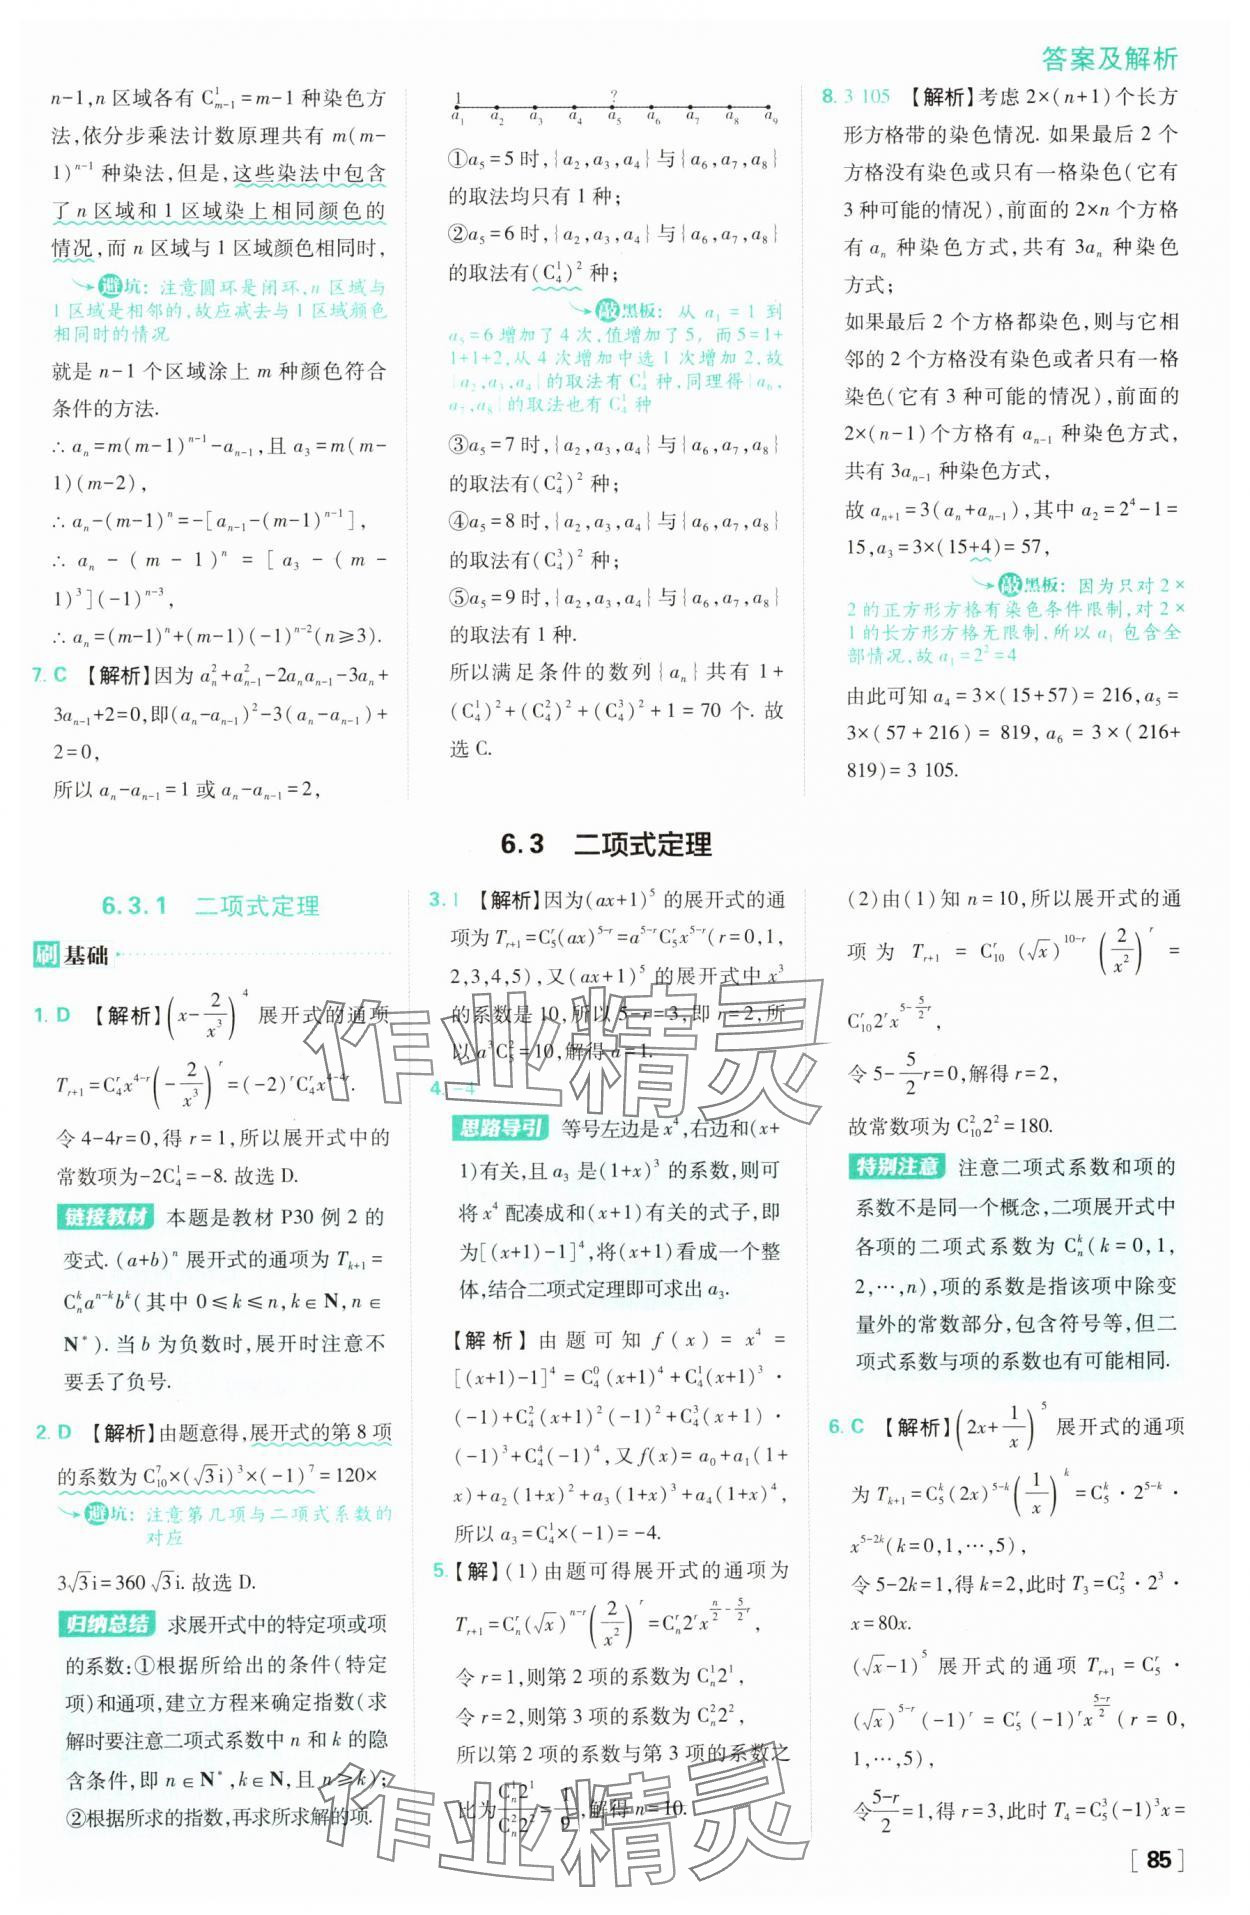 答案及解析
n-1,n 区域各有 C¹ₘ₋₁=m-1 种染色方
法,依分步乘法计数原理共有 m(m-
1)ⁿ⁻¹ 种染法,但是,这些染法中包含
了 n 区域和 1 区域染上相同颜色的
情况,而 n 区域与 1 区域颜色相同时,
避坑:注意圆环是闭环,n 区域与
1 区域是相邻的,故应减去与 1 区域颜色
相同时的情况
就是 n-1 个区域涂上 m 种颜色符合
条件的方法.
∴ aₙ=m(m-1)ⁿ⁻¹-aₙ₋₁,且 a₃=m(m-
1)(m-2),
∴ aₙ-(m-1)ⁿ=-[aₙ₋₁-(m-1)ⁿ⁻¹],
∴ aₙ-(m-1)ⁿ=[a₃-(m-
1)³](-1)ⁿ⁻³,
∴ aₙ=(m-1)ⁿ+(m-1)(-1)ⁿ⁻²(n≥3).
7. C 【解析】因为 aₙ²+aₙ₋₁²-2aₙaₙ₋₁-3aₙ+
3aₙ₋₁+2=0,即(aₙ-aₙ₋₁)²-3(aₙ-aₙ₋₁)+
2=0,
所以 aₙ-aₙ₋₁=1 或 aₙ-aₙ₋₁=2,
1 ?
a₁ a₂ a₃ a₄ a₅ a₆ a₇ a₈ a₉
①a₅=5 时,{a₂,a₃,a₄}与{a₆,a₇,a₈}
的取法均只有 1 种;
②a₅=6 时,{a₂,a₃,a₄}与{a₆,a₇,a₈}
的取法有(C₄¹)² 种;
敲黑板:从 a₁=1 到
a₅=6 增加了 4 次,值增加了 5, 而 5=1+
1+1+2,从 4 次增加中选 1 次增加 2,故
{a₂,a₃,a₄}的取法有 C₄¹ 种,同理得{a₆,
a₇,a₈}的取法也有 C₄¹ 种
③a₅=7 时,{a₂,a₃,a₄}与{a₆,a₇,a₈}
的取法有(C₄²)² 种;
④a₅=8 时,{a₂,a₃,a₄}与{a₆,a₇,a₈}
的取法有(C₄³)² 种;
⑤a₅=9 时,{a₂,a₃,a₄}与{a₆,a₇,a₈}
的取法有 1 种.
所以满足条件的数列{aₙ}共有 1+
(C₄¹)²+(C₄²)²+(C₄³)²+1=70 个. 故
选 C.
8. 3 105 【解析】考虑 2×(n+1)个长方
形方格带的染色情况. 如果最后 2 个
方格没有染色或只有一格染色(它有
3 种可能的情况),前面的 2×n 个方格
有 aₙ 种染色方式,共有 3aₙ 种染色
方式;
如果最后 2 个方格都染色,则与它相
邻的 2 个方格没有染色或者只有一格
染色(它有 3 种可能的情况),前面的
2×(n-1)个方格有 aₙ₋₁ 种染色方式,
共有 3aₙ₋₁ 种染色方式,
故 aₙ₊₁=3(aₙ+aₙ₋₁),其中 a₂=2⁴-1=
15,a₃=3×(15+4)=57,
敲黑板:因为只对 2×
2 的正方形方格有染色条件限制,对 2×
1 的长方形方格无限制,所以 a₁ 包含全
部情况,故 a₁=2²=4
由此可知 a₄=3×(15+57)=216,a₅=
3×(57+216)=819, a₆=3×(216+
819)=3 105.
6.3 二项式定理
6.3.1 二项式定理
刷基础
1. D 【解析】(x-2/x³)⁴ 展开式的通项
Tᵣ₊₁=C₄ʳx⁴⁻ʳ(-2/x³)ʳ=(-2)ʳC₄ʳx⁴⁻⁴ʳ.
令 4-4r=0,得 r=1,所以展开式中的
常数项为-2C₄¹=-8. 故选 D.
链接教材 本题是教材 P30 例 2 的
变式. (a+b)ⁿ 展开式的通项为 Tₖ₊₁=
Cₙᵏaⁿ⁻ᵏbᵏ(其中 0≤k≤n,k∈N,n∈
N*). 当 b 为负数时,展开时注意不
要丢了负号.
2. D 【解析】由题意得,展开式的第 8 项
的系数为 C₁₀⁷×(√3i)³×(-1)⁷=120×
避坑:注意第几项与二项式系数的
对应
3√3i=360√3i. 故选 D.
归纳总结 求展开式中的特定项或项
的系数:①根据所给出的条件(特定
项)和通项,建立方程来确定指数(求
解时要注意二项式系数中 n 和 k 的隐
含条件,即 n∈N*,k∈N,且 n≥k);
②根据所求的指数,再求所求解的项.
3. 1 【解析】因为(ax+1)⁵ 的展开式的通
项为 Tᵣ₊₁=C₅ʳ(ax)⁵⁻ʳ=a⁵⁻ʳC₅ʳx⁵⁻ʳ(r=0,1,
2,3,4,5),又(ax+1)⁵ 的展开式中 x³
的系数是 10,所以 5-r=3,即 r=2,所
以 a³C₅²=10,解得 a=1.
4. -4
思路导引 等号左边是 x⁴,右边和(x+
1)有关,且 a₃ 是(1+x)³ 的系数,则可
将 x⁴ 配凑成和(x+1)有关的式子,即
为[(x+1)-1]⁴,将(x+1)看成一个整
体,结合二项式定理即可求出 a₃.
【解析】由题可知 f(x)=x⁴=
[(x+1)-1]⁴=C₄⁰(x+1)⁴+C₄¹(x+1)³·
(-1)+C₄²(x+1)²(-1)²+C₄³(x+1)·
(-1)³+C₄⁴(-1)⁴,又 f(x)=a₀+a₁(1+
x)+a₂(1+x)²+a₃(1+x)³+a₄(1+x)⁴,
所以 a₃=C₄¹×(-1)=-4.
5.【解】(1)由题可得展开式的通项为
Tᵣ₊₁=Cₙʳ(√x)ⁿ⁻ʳ(2/x²)ʳ=Cₙʳ2ʳx^(n/2-5/2 r),
令 r=1,则第 2 项的系数为 Cₙ¹2¹,
令 r=2,则第 3 项的系数为 Cₙ²2²,
所以第 2 项的系数与第 3 项的系数之
比为 Cₙ¹2¹/Cₙ²2²=1/9,解得 n=10.
(2)由(1)知 n=10,所以展开式的通
项为 Tᵣ₊₁=C₁₀ʳ(√x)¹⁰⁻ʳ(2/x²)ʳ=
C₁₀ʳ2ʳx^(5-5/2 r),
令 5-5/2 r=0,解得 r=2,
故常数项为 C₁₀²2²=180.
特别注意 注意二项式系数和项的
系数不是同一个概念,二项展开式中
各项的二项式系数为 Cₙᵏ(k=0,1,
2,…,n),项的系数是指该项中除变
量外的常数部分,包含符号等,但二
项式系数与项的系数也有可能相同.
6. C 【解析】(2x+1/x)⁵ 展开式的通项
为 Tₖ₊₁=C₅ᵏ(2x)⁵⁻ᵏ(1/x)ᵏ=C₅ᵏ·2⁵⁻ᵏ·
x⁵⁻²ᵏ(k=0,1,…,5),
令 5-2k=1,得 k=2,此时 T₃=C₅²·2³·
x=80x.
(√x-1)⁵ 展开式的通项 Tᵣ₊₁=C₅ʳ·
(√x)⁵⁻ʳ(-1)ʳ=C₅ʳ(-1)ʳx^((5-r)/2)(r=0,
1,…,5),
令(5-r)/2=1,得 r=3,此时 T₄=C₅³(-1)³x=
[85]
作业精灵
作业精灵